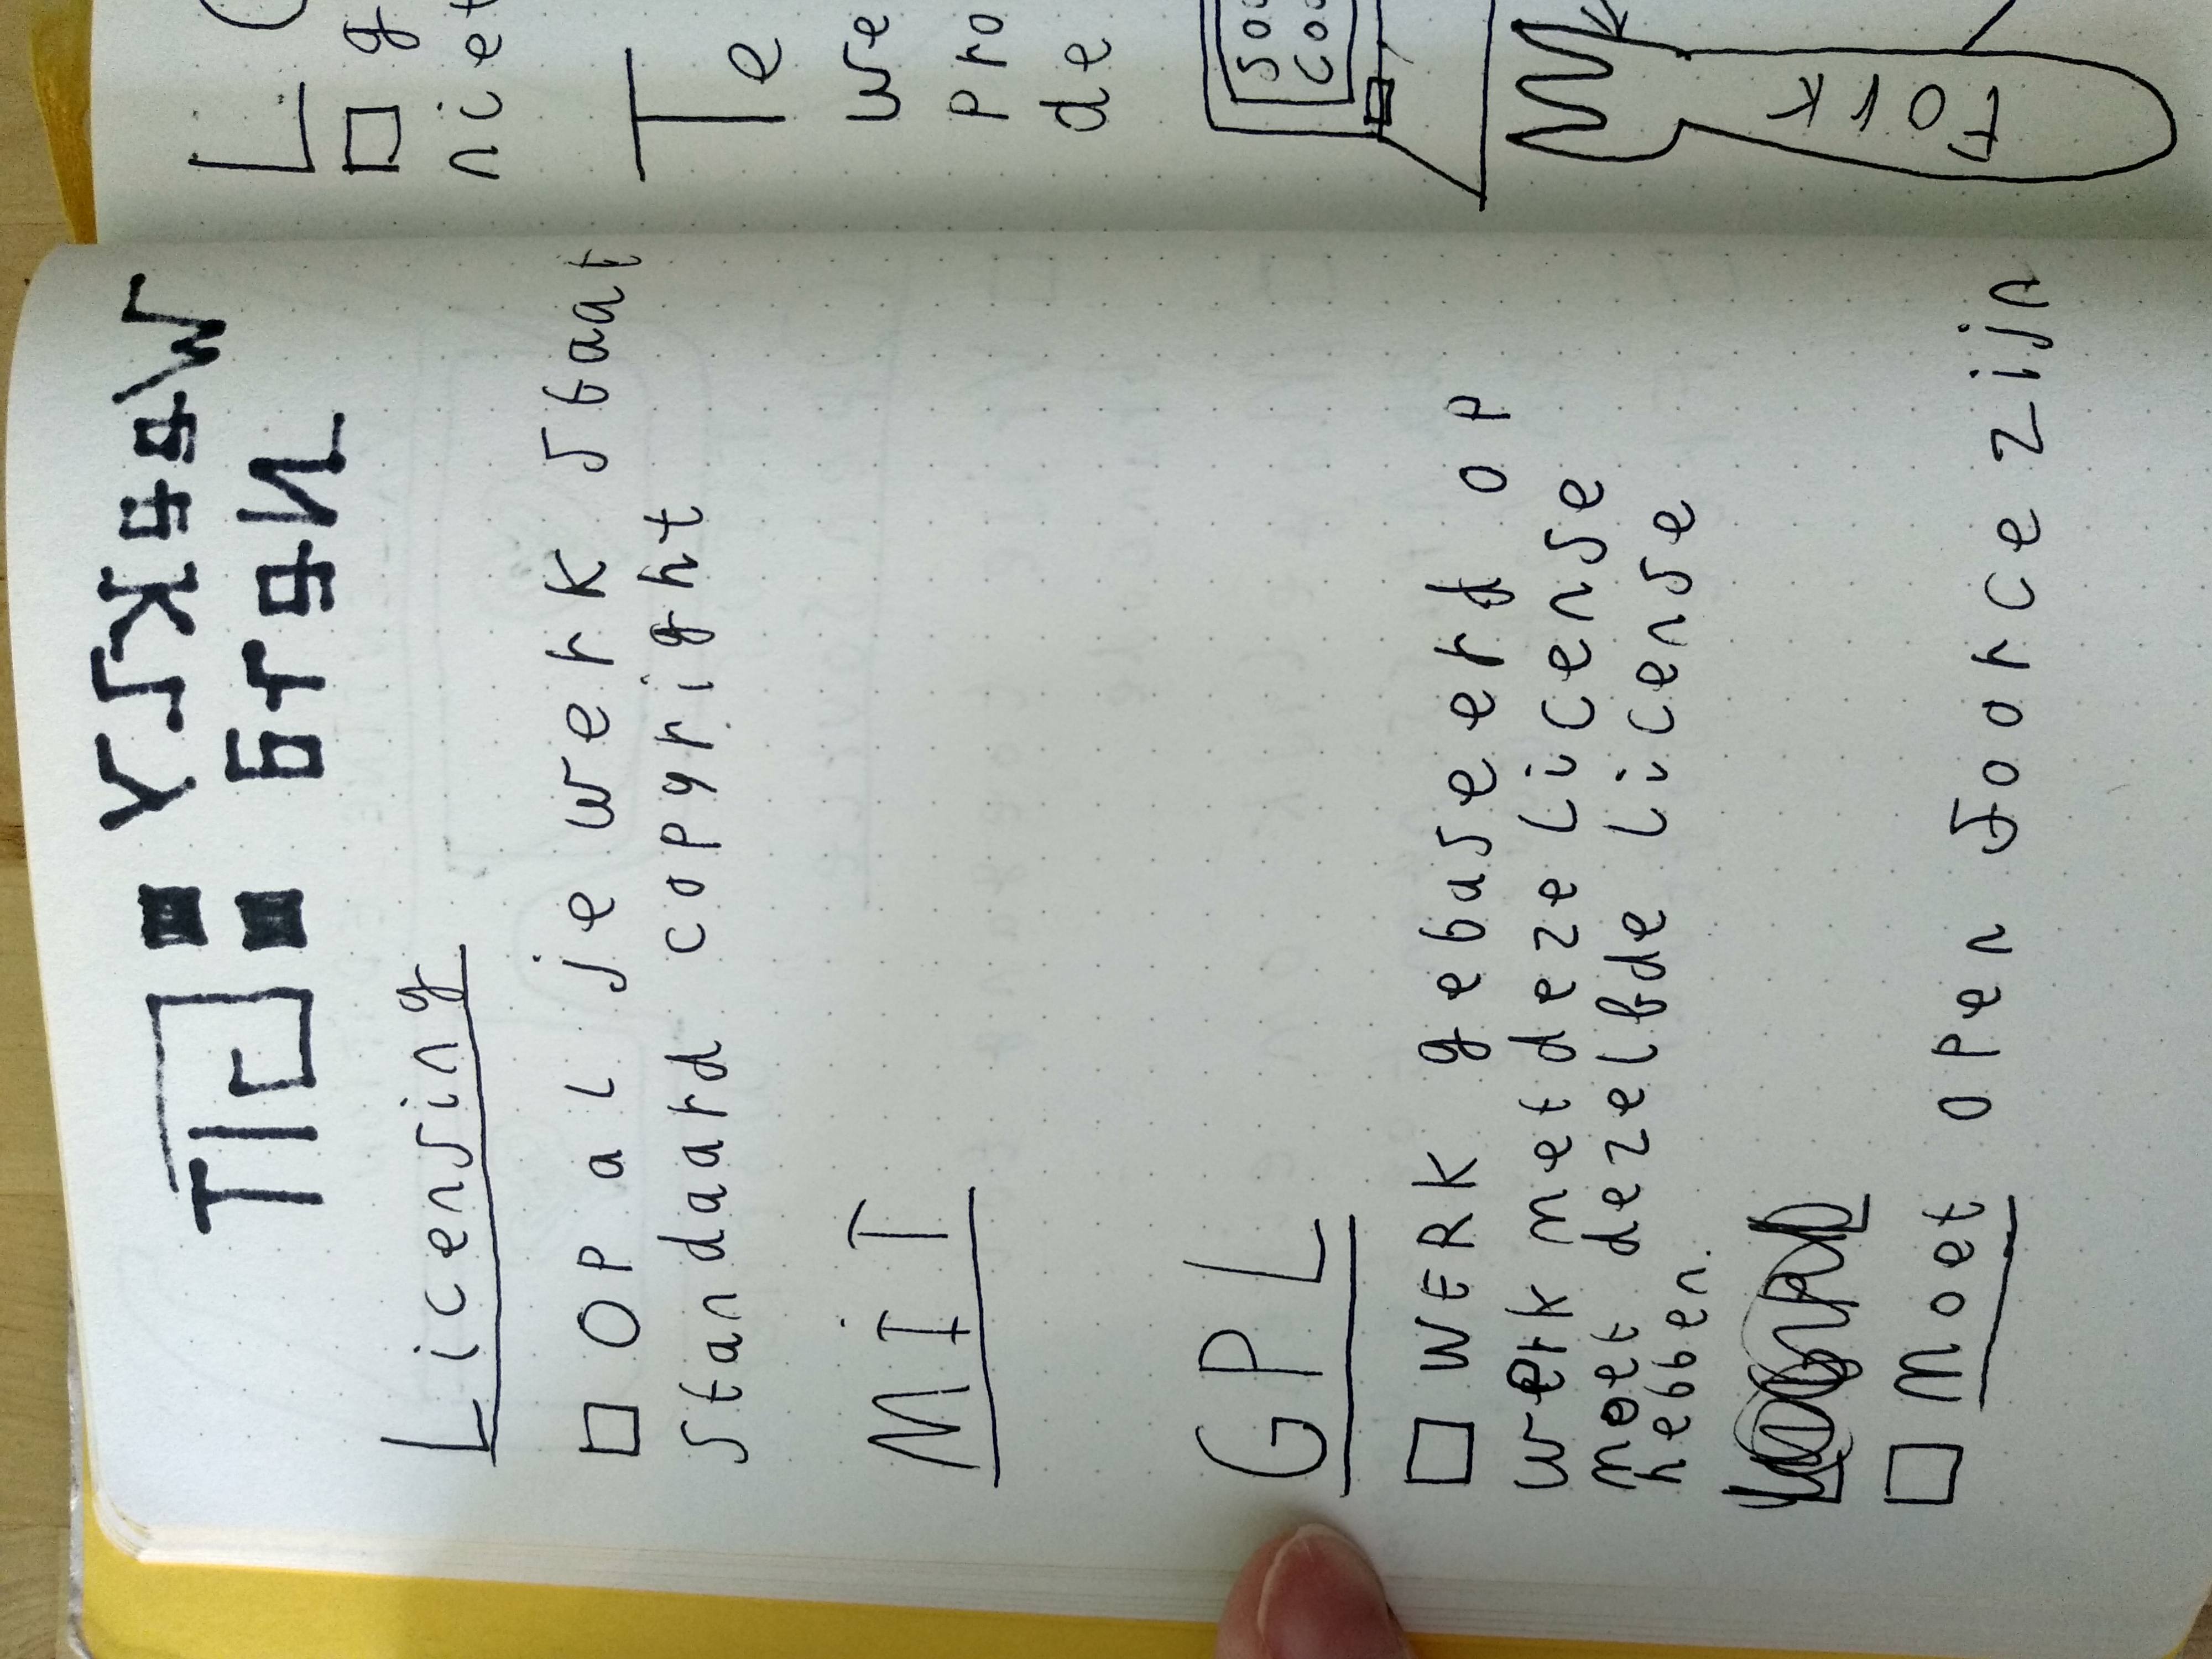 Weekly
Nerd : GIT
Licensing
□ Op al je werk staat
standaard copyright
MIT
GPL
□ WERK gebaseerd op
werk met deze license
moet dezelfde license
hebben.
□ Moet open soorce zijn
g
niet
Te
we
pro
de
Fork